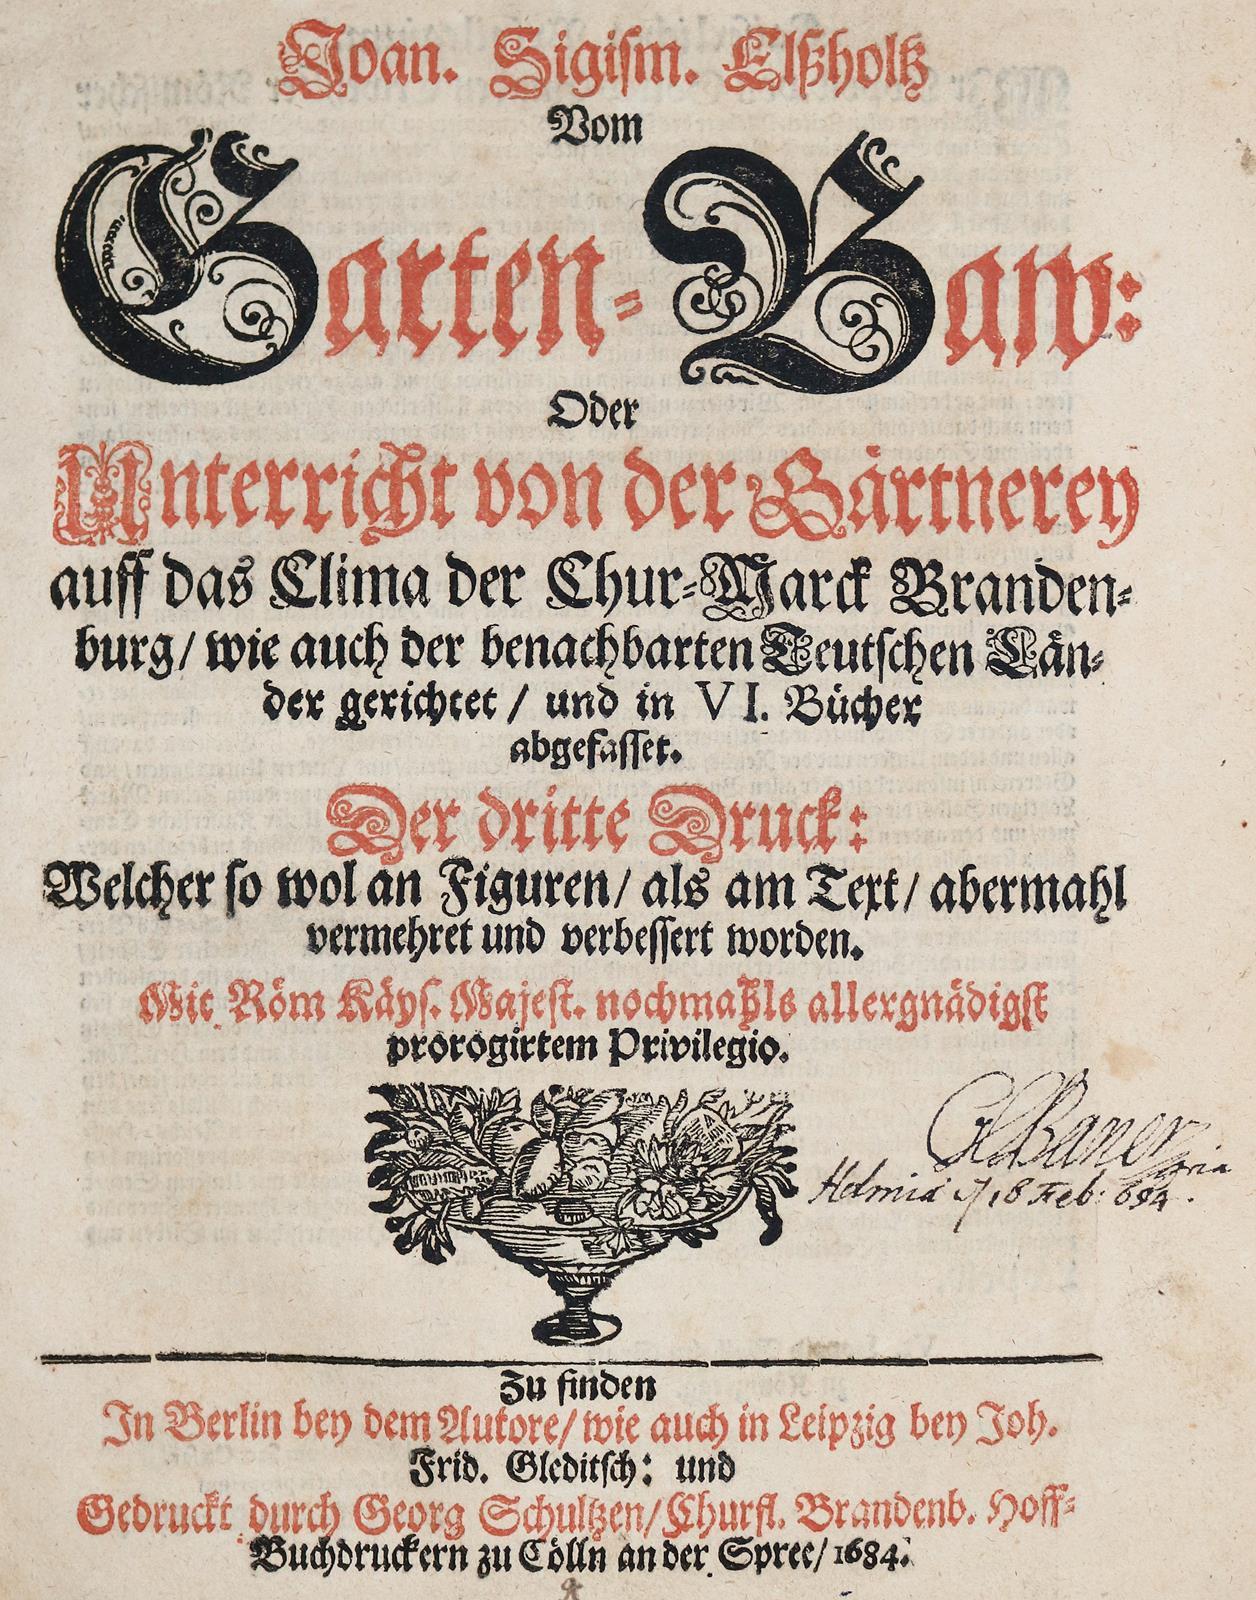 Joan. Sigiſm. Elßholtz
Vom
Garten-Baw:
Oder
Unterricht von der Gärtnerey
auff das Clima der Chur-Marck Branden-
burg/ wie auch der benachbarten Teutſchen Län-
der gerichtet/ und in VI. Bücher
abgefaſſet.
Der dritte Druck:
Welcher ſo wol an Figuren/ als am Text/ abermahl
vermehret und verbeſſert worden.
Mit Röm Käyſ. Majeſt. nochmahls allergnädigſt
prorogirtem Privilegio.
18 Feb: 684.
Zu finden
In Berlin bey dem Autore/ wie auch in Leipzig bey Joh.
Frid. Gleditſch: und
Gedruckt durch Georg Schultzen/ Churfl. Brandenb. Hoff-
Buchdruckern zu Cölln an der Spree/ 1684.